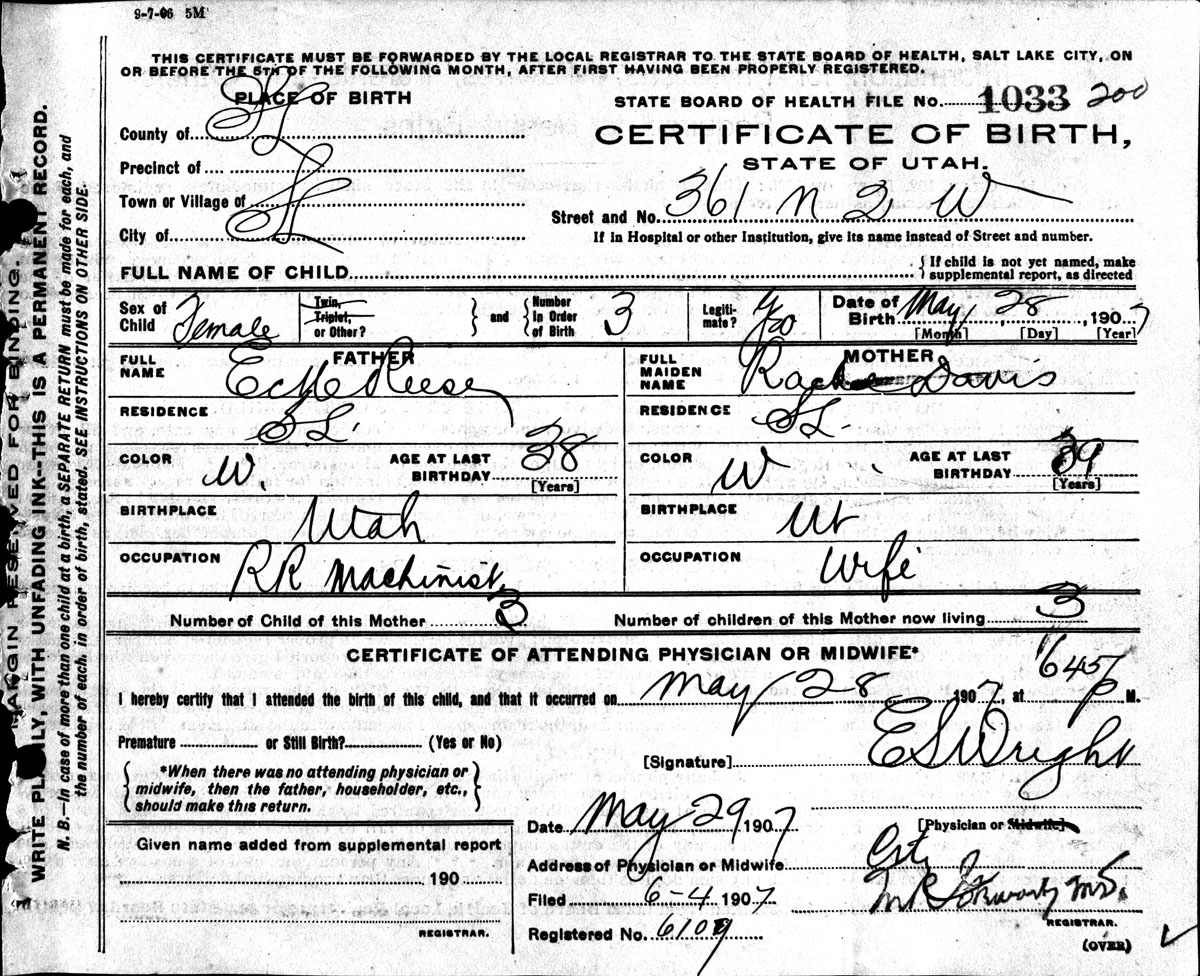 9-7-06 5M
THIS CERTIFICATE MUST BE FORWARDED BY THE LOCAL REGISTRAR TO THE STATE BOARD OF HEALTH, SALT LAKE CITY, ON
OR BEFORE THE 5TH OF THE FOLLOWING MONTH, AFTER FIRST HAVING BEEN PROPERLY REGISTERED.
PLACE OF BIRTH
STATE BOARD OF HEALTH FILE No. 1033 200
County of S L
CERTIFICATE OF BIRTH,
STATE OF UTAH.
Precinct of
Town or Village of
City of S L
Street and No. 361 N 2 W
If in Hospital or other Institution, give its name instead of Street and number.
FULL NAME OF CHILD
{ If child is not yet named, make
supplemental report, as directed
Sex of Child Female
Twin, Triplet, or Other?
} and { Number in Order of Birth 3
Legiti- mate? Yes
Date of Birth May 28, 1907
[Month] [Day] [Year]
FATHER
FULL NAME Reese
MOTHER
FULL MAIDEN NAME Davis
RESIDENCE S L.
RESIDENCE S L.
COLOR W. AGE AT LAST BIRTHDAY 38 [Years]
COLOR W AGE AT LAST BIRTHDAY 39 [Years]
BIRTHPLACE Utah
BIRTHPLACE Ut
OCCUPATION RR Machinist
OCCUPATION Wife
Number of Child of this Mother 3
Number of children of this Mother now living 3
CERTIFICATE OF ATTENDING PHYSICIAN OR MIDWIFE*
I hereby certify that I attended the birth of this child, and that it occurred on May 28 1907, at 645 P M.
Premature or Still Birth? (Yes or No)
[Signature] E S Wright
{ *When there was no attending physician or
midwife, then the father, householder, etc.,
should make this return. }
Date May 29 1907
[Physician or Midwife]
Given name added from supplemental report
190
REGISTRAR.
Address of Physician or Midwife City
Filed 6-4 1907
M.D.
REGISTRAR.
Registered No. 6109
(OVER)
MARGIN RESERVED FOR BINDING.
WRITE PLAINLY WITH UNFADING INK--THIS IS A PERMANENT RECORD.
N. B.—In case of more than one child at a birth, a SEPARATE RETURN must be made for each, and
the number of each, in order of birth, stated. SEE INSTRUCTIONS ON OTHER SIDE.